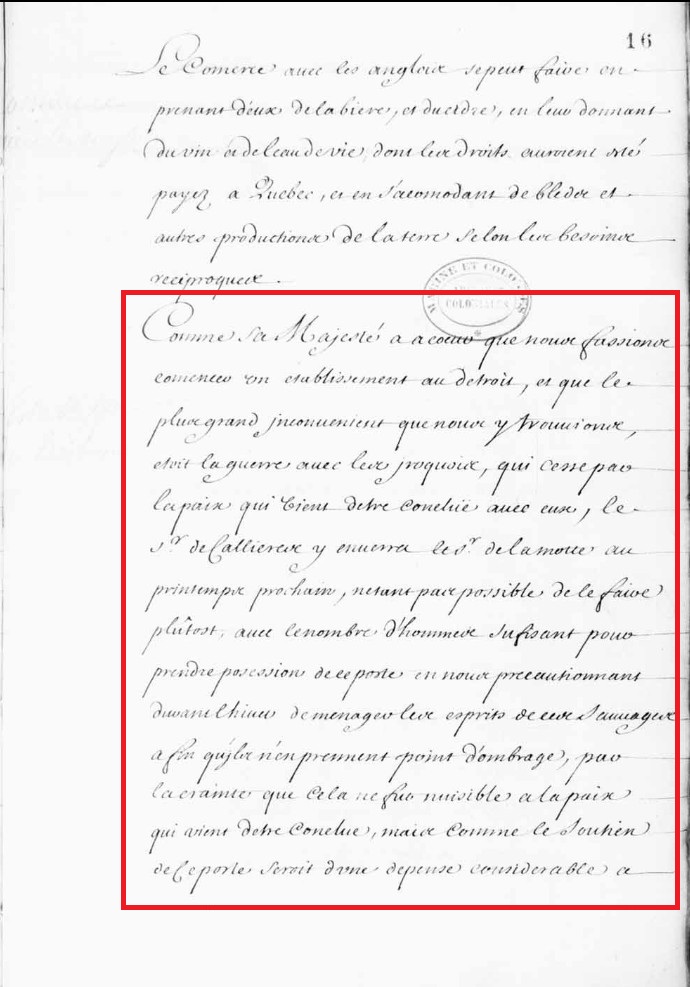 16
Le Comerce avec les anglois se peut faire en
prenant d'eux de la biere, et du cidre, en leur donnant
du vin et de l'eau de vie, dont les droits auroient esté
payez a Quebec, et en s'acomodant de bleds et
autres productions de la terre selon les besoins
reciproques.
MARINE ET COLONIES
COLONIALES
Comme Sa Majesté a a coeur que nous fassions
comencer un etablissement au detroit, et que le
plus grand jnconvenient que nous y trouvions,
etoit la guerre avec les jroquois, qui cesse par
la paix qui vient detre concluë avec eux, le
Sr. de Callieres y enverra le Sr. de la motte au
printemps prochain, netant pas possible de le faire
plûtost, avec le nombre d'hommes sufisant pour
prendre posession de ce poste en nous precautionnant
durant lhiver de menager les esprits de ces Sauvages
a fin qu'jls n'en prennent point d'ombrage, par
la crainte que cela ne fut nuisible a la paix
qui vient detre Conclue, mais comme le Soutien
de Ce poste seroit d'une depense considerable a